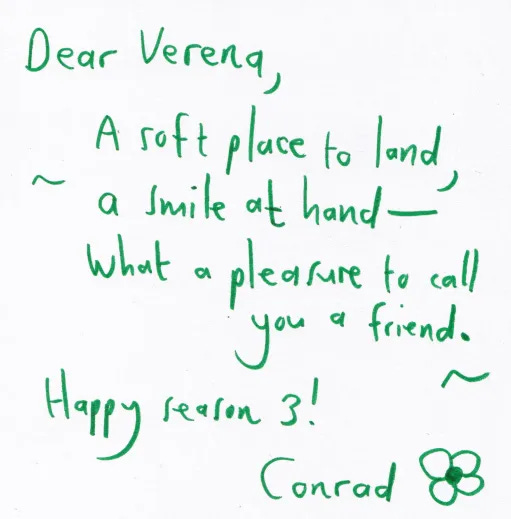 Dear Verena,
A soft place to land,
~ a smile at hand—
What a pleasure to call
you a friend.
~
Happy season 3!
Conrad